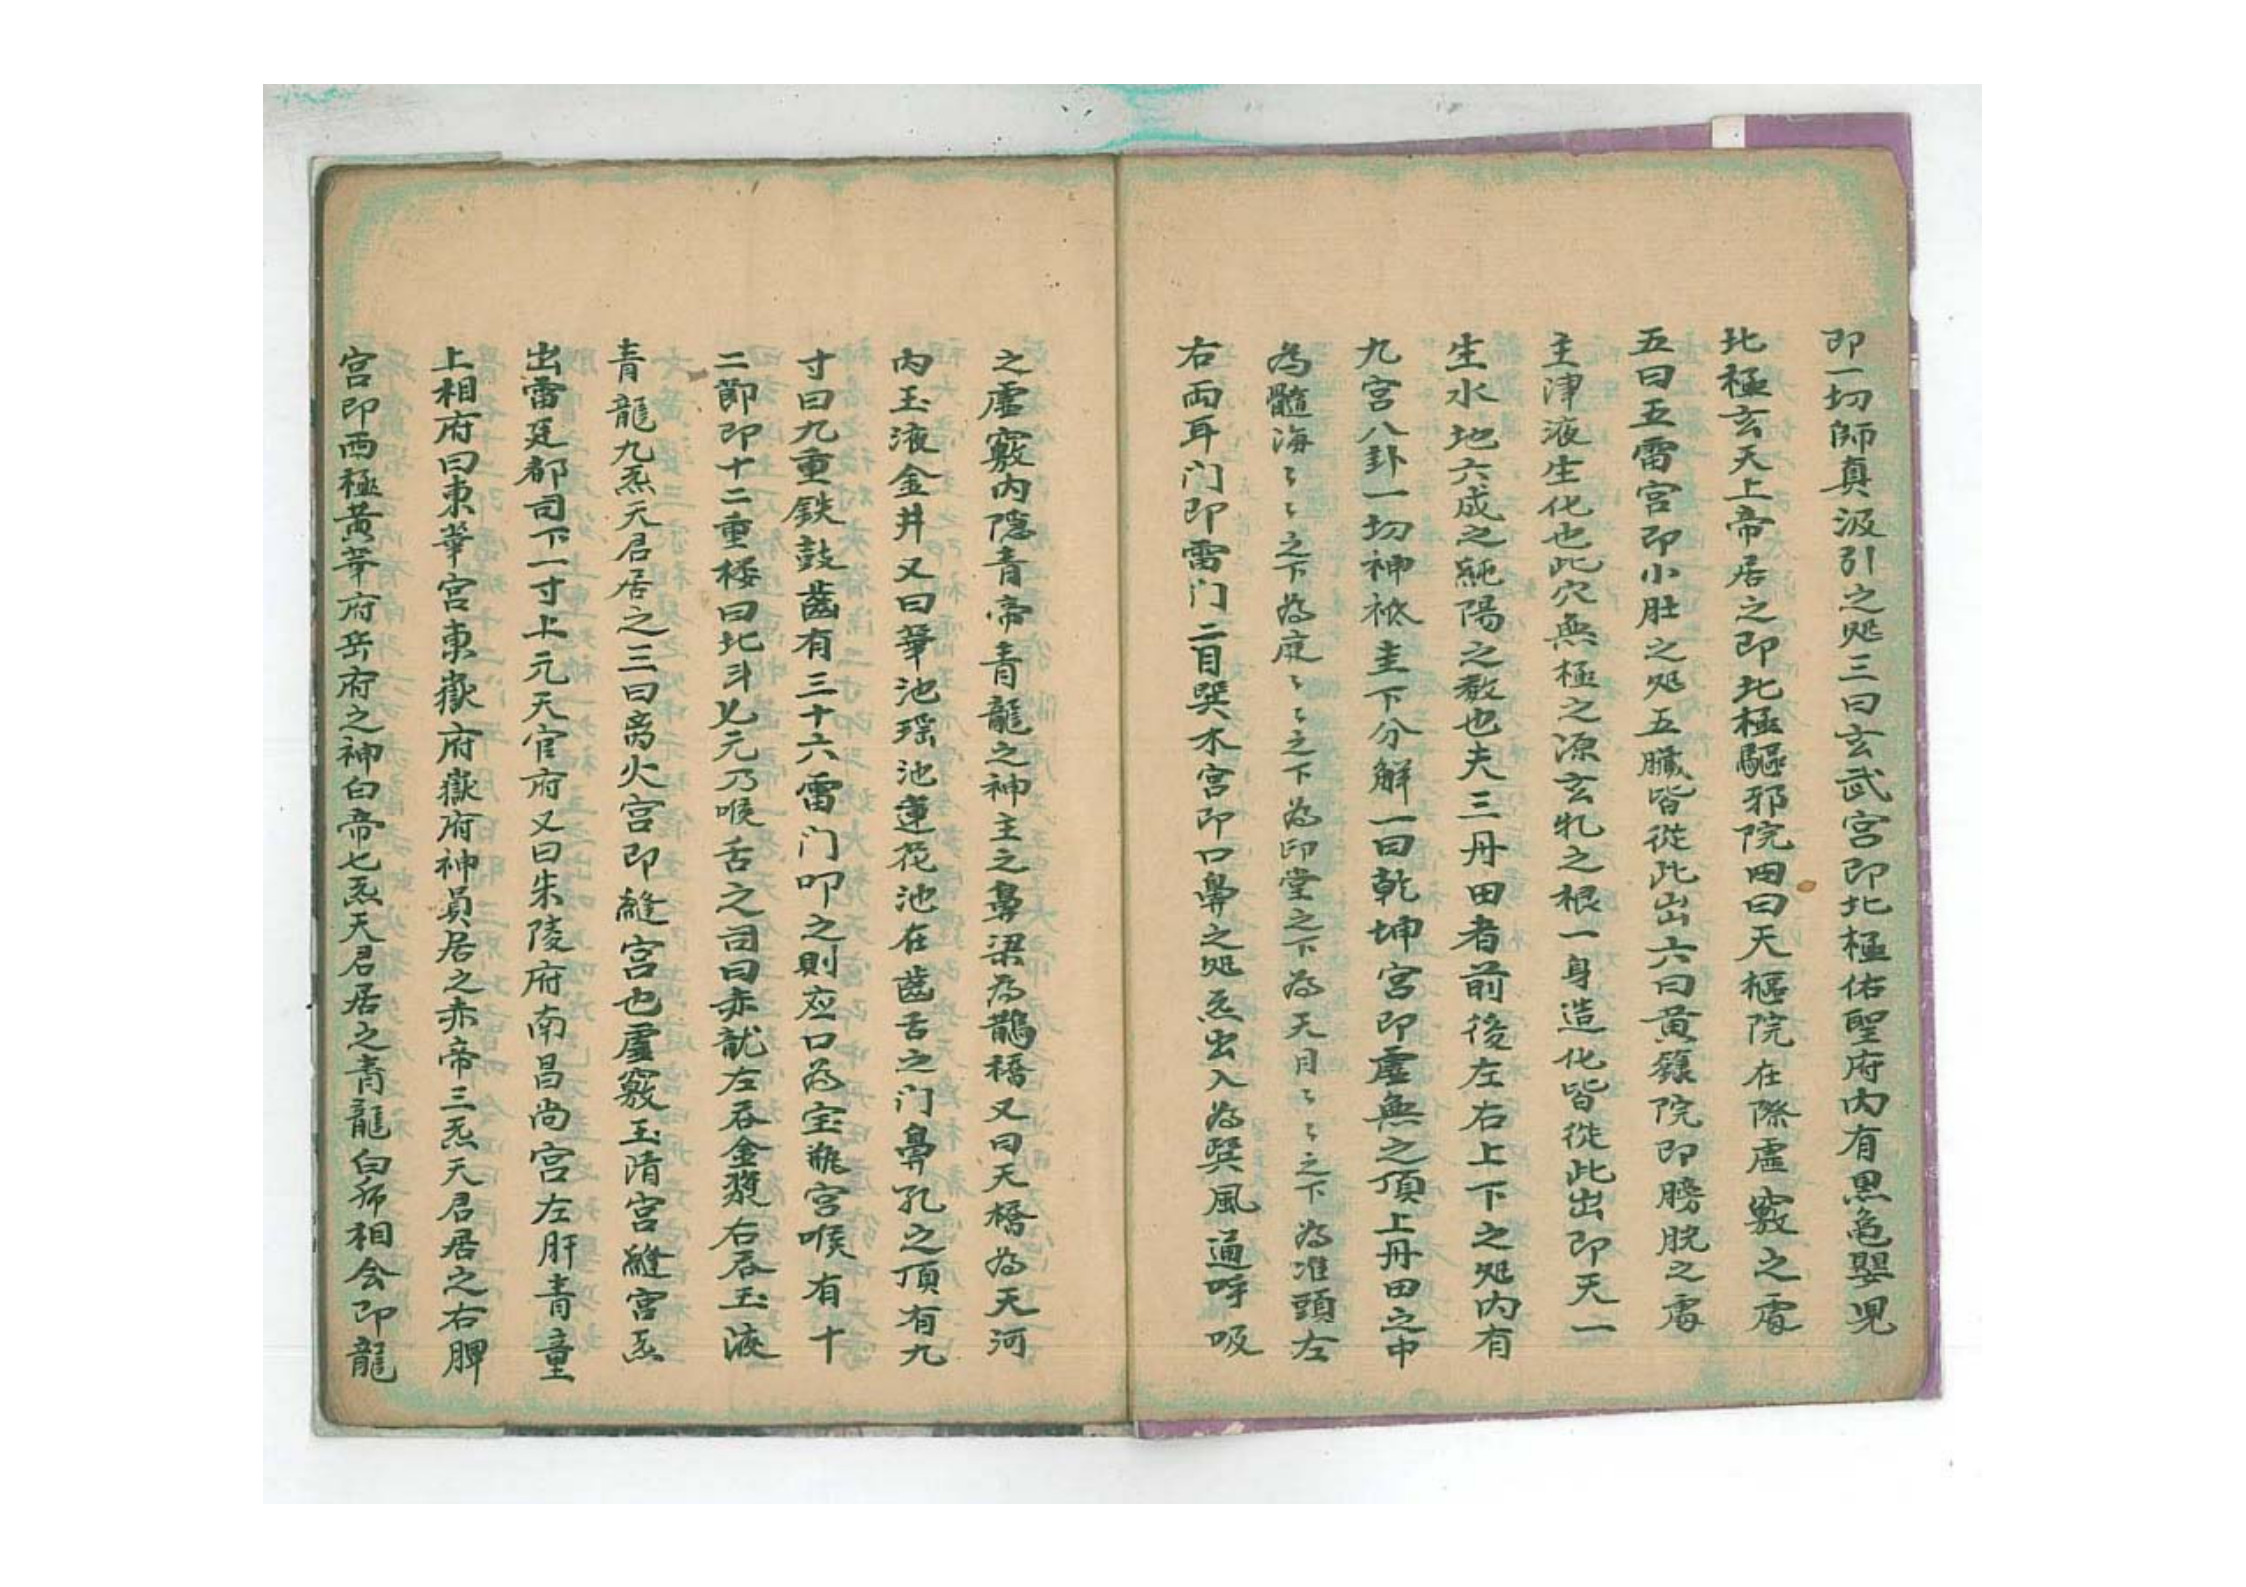 即一切師真汲引之处三曰玄武宫即北極佑聖府内有黑亀嬰児
北極玄天上帝居之即北極驅邪院四曰天樞院在際虛竅之處
五曰五雷宮即小肚之处五臟皆從此出六曰黄籙院即膀胱之處
主津液生化也此穴無極之源玄牝之根一身造化皆從此出即天一
生水地六成之純陽之数也夫三丹田者前後左右上下之处内有
九宫八卦一切神祗主下分解一曰乾坤宫即虛無之頂上丹田之中
為髓海〻〻之下為庭〻〻之下為印堂之下為天月〻〻之下為准頭左
右両耳门即雷门二目巽木宫即口鼻之处炁出入為巽風通呼吸
之虛竅内隐青帝青龍之神主之鼻梁為鵲橋又曰天橋為天河
内玉液金井又曰華池瑶池蓮花池在齒舌之门鼻孔之頂有九
寸曰九重鉄鼓齒有三十六雷门叩之則应口為宝瓶宫喉有十
二節即十二重楼曰北斗乂元乃喉舌之司曰赤龍左吞金漿右吞玉液
青龍九炁天君居之三曰离火宫即縫宫也虛竅玉隋宫縫宫炁
出雷廷都司下一寸上元天官府又曰朱陵府南昌尚宫左肝青童
上相府曰東華宫東嶽府嶽府神員居之赤帝三炁天君居之右脾
宫即西極黄華府岳府之神白帝七炁天君居之青龍白虎相会即龍